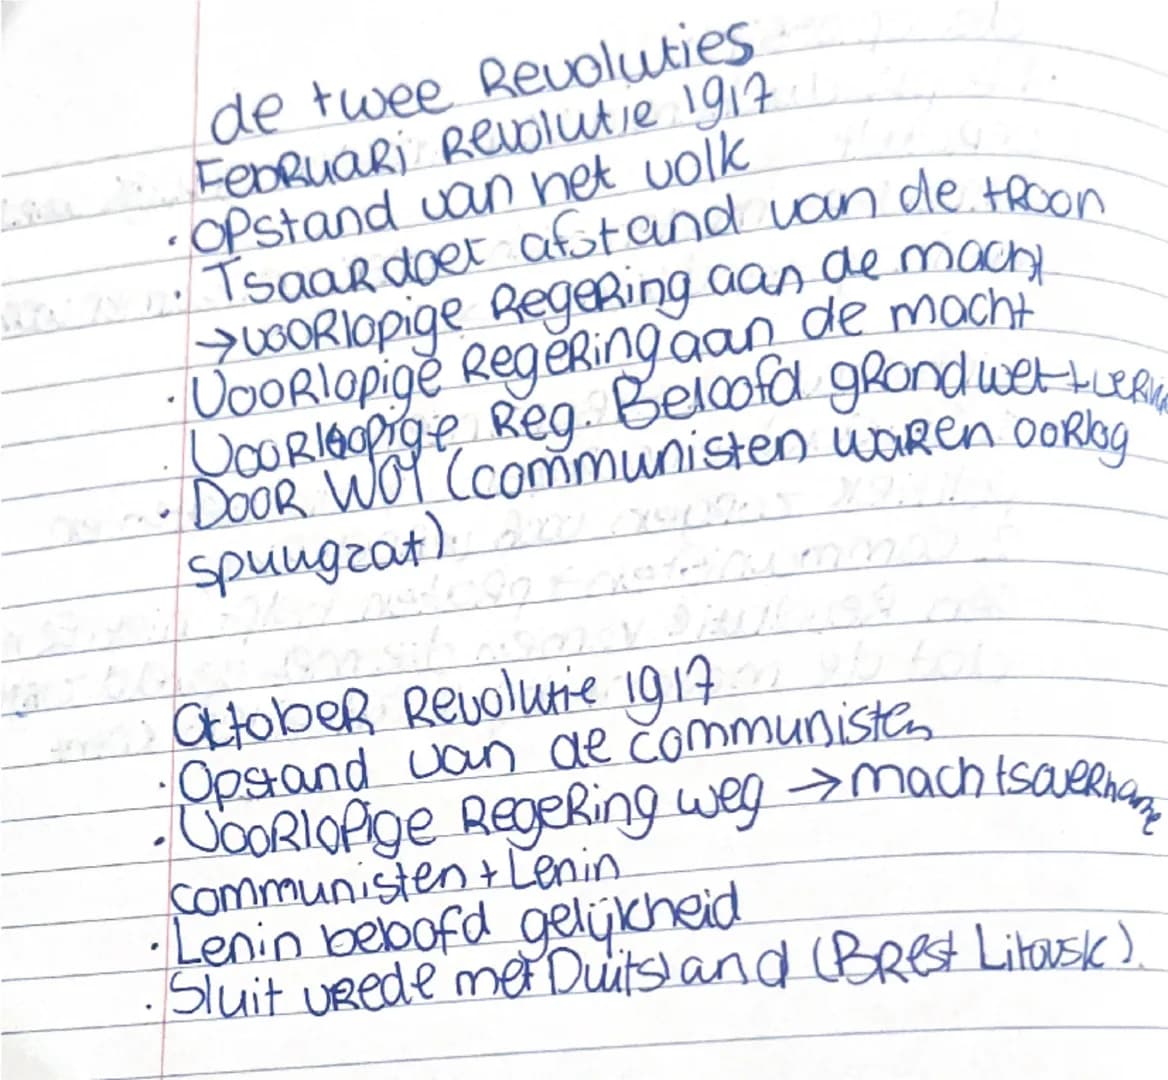 de twee Revoluties
Februari Revolutie 1917
· Opstand van het volk
· Tsaar doet afstand van de troon
→ voorlopige Regering aan de macht
· Voorlopige Regering aan de macht
· Voorloopige Reg. Beloofd grondwet +
· Door WO1 (communisten waren oorlog
spuugzat)
October Revolutie 1917
· Opstand van de communisten
· Voorlopige Regering weg → machtsovername
communisten + Lenin
· Lenin beloofd gelijkheid
· Sluit vrede met Duitsland (Brest Litovsk).